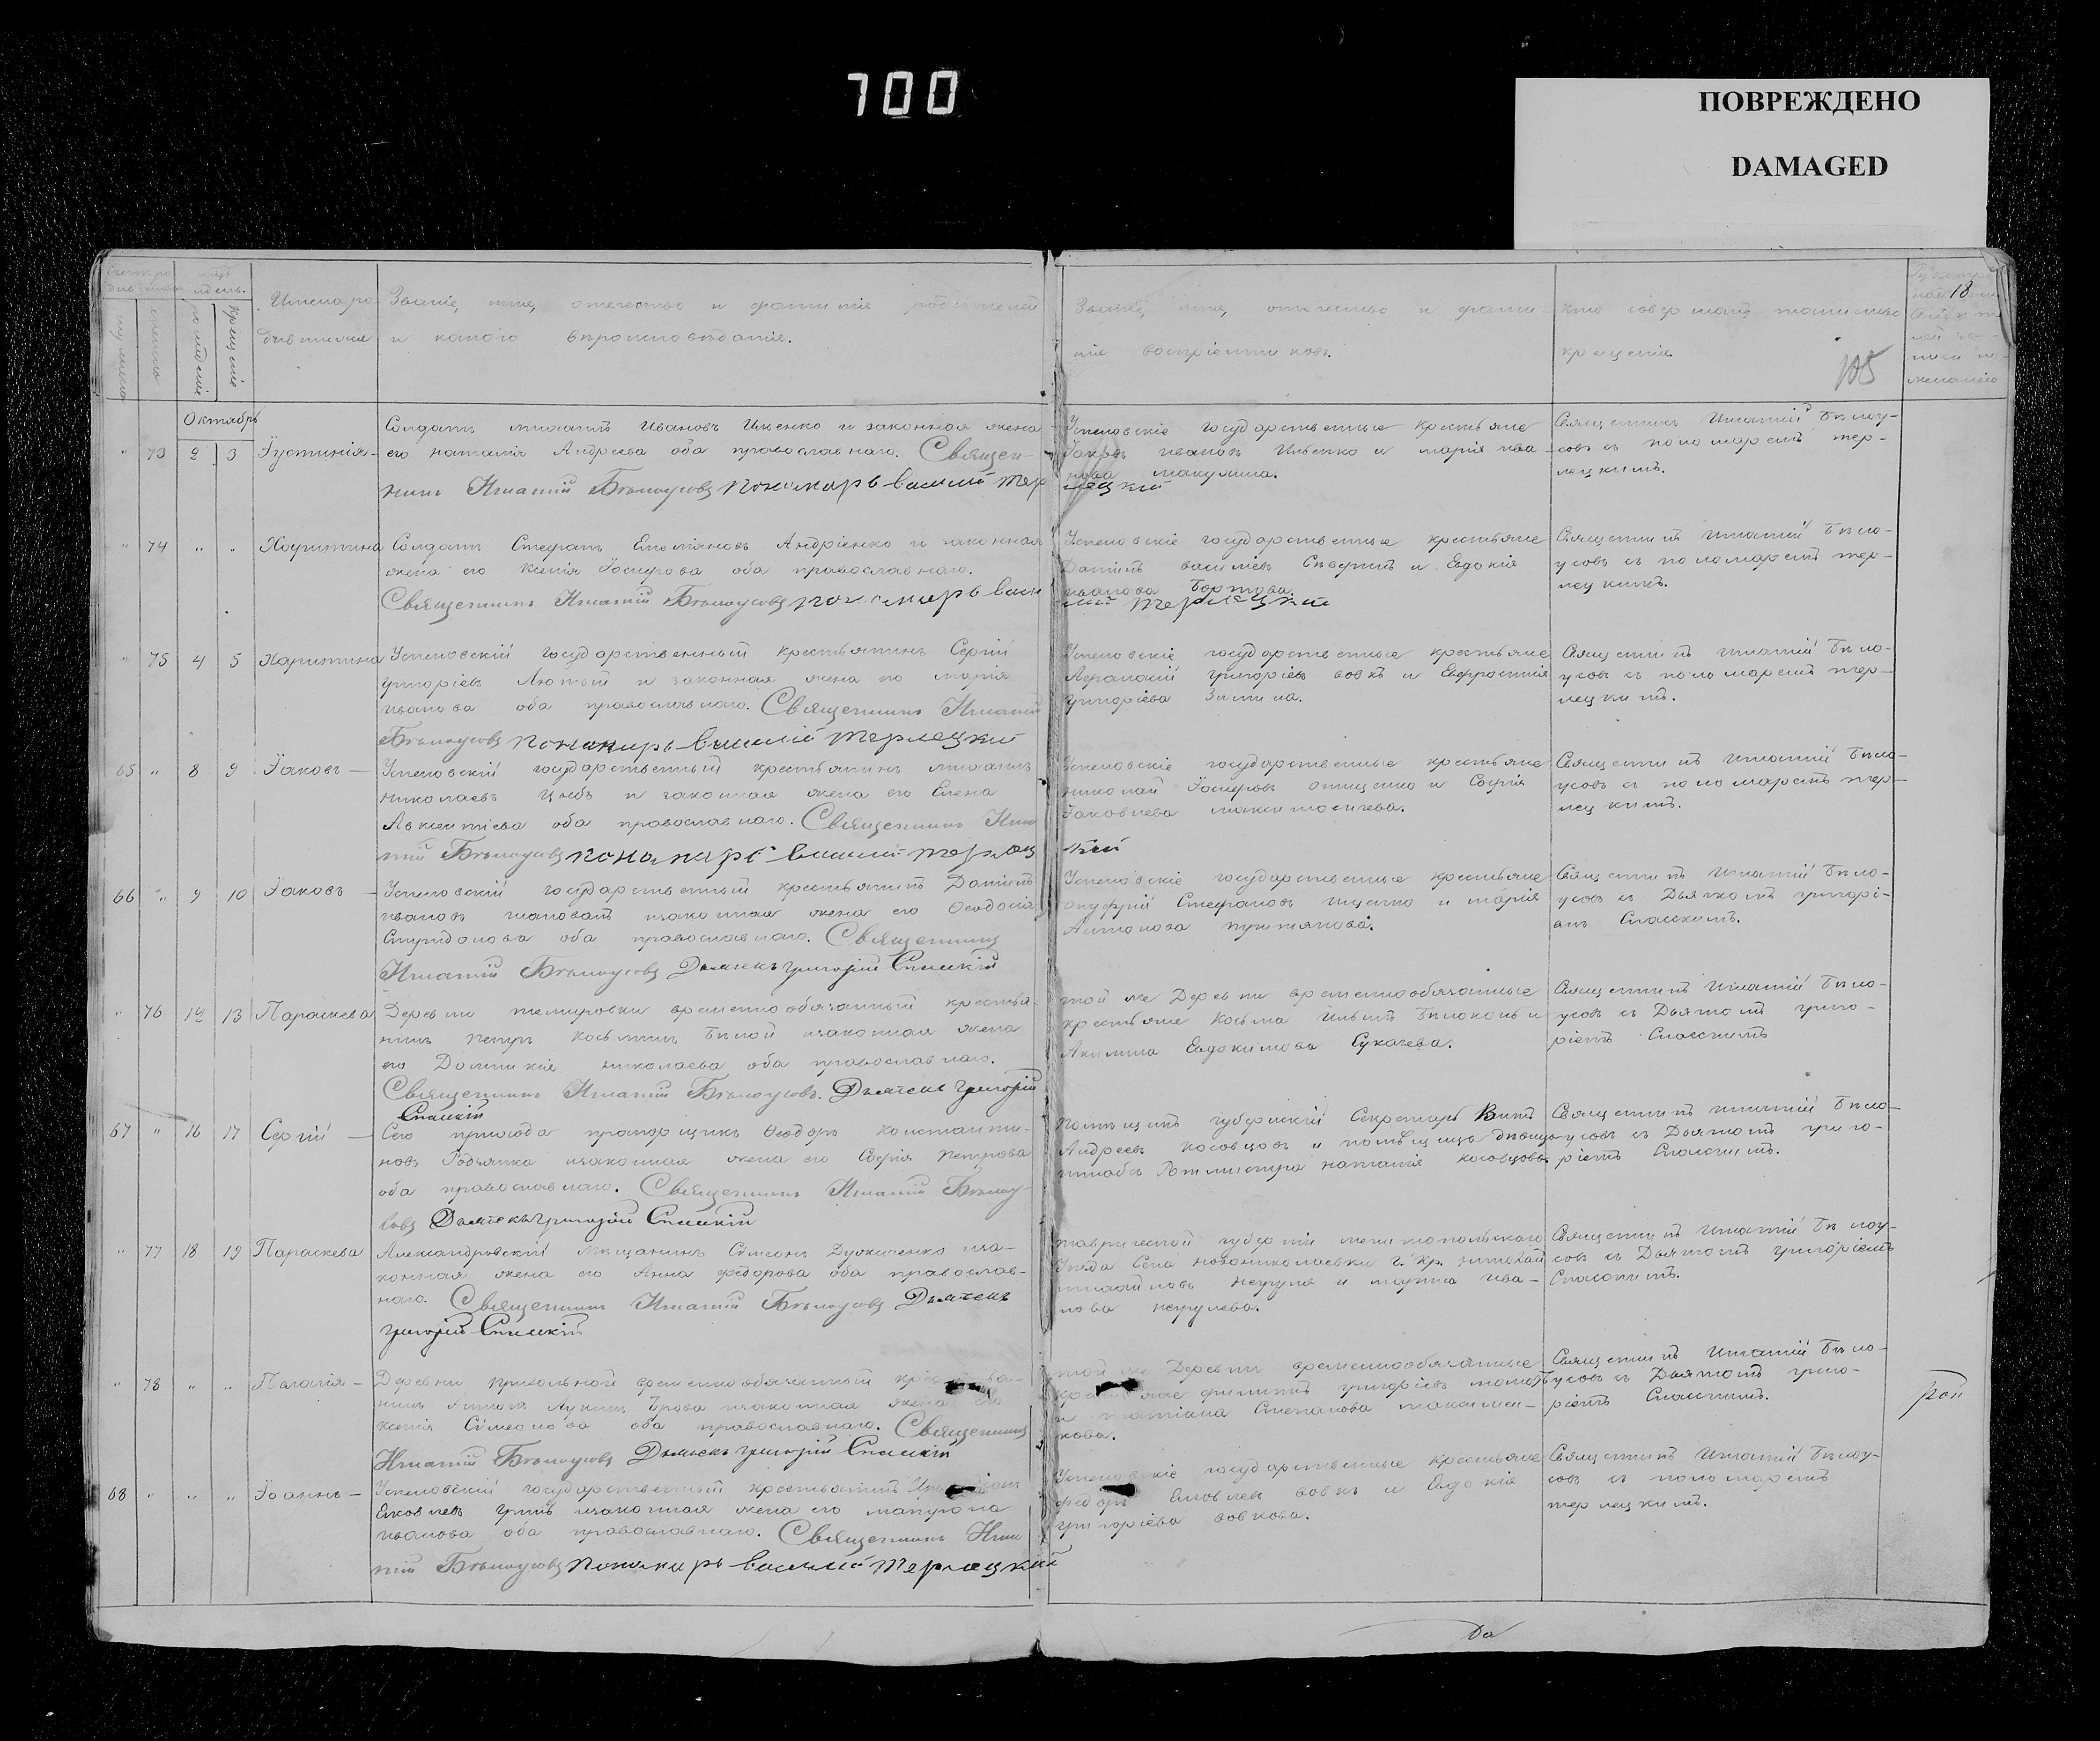 700
ПОВРЕЖДЕНО
DAMAGED
18
105
Имена ро-
дившихся
Званіе, имя, отечество и фамилія родителей
и какого вѣроисповѣданія.
Званіе, имя, отечество и фами-
лія воспріемниковъ.
Кто совершалъ таинство
крещенія.
мужеска
женска
рожденіе
крещеніе
Октябрь
" 73 2 3 Іустинія-
Солдатъ Игнатъ Ивановъ Ильенко и законная жена
его наталія Андреева оба православнаго. Священ-
никъ Игнатій Бѣлоусовъ пономарь василій тер
лецкій
Успеновскіе государственные крестьяне
Іаковъ ивановъ Ильенко и марія ива-
нова макухина.
Священникъ Игнатій Бѣлоу-
совъ съ пономаремъ тер-
лецкимъ.
" 74 " " Харитина
Солдатъ Стефанъ Емеліяновъ Андріенко и законная
жена его Ксенія Іосифова оба православнаго.
Священникъ Игнатій Бѣлоусовъ пономарь васи
лій терлецкій
Успеновскіе государственные крестьяне
Даніилъ васильевъ и Евдокія
иванова
Священникъ Игнатій Бѣло-
усовъ съ пономаремъ тер-
лецкимъ.
" 75 4 5 Харитина
Успеновскій государственный крестьянинъ Сергій
григоріевъ Лютый и законная жена его марія
иванова оба православнаго. Священникъ Игнатій
Бѣлоусовъ пономарь василій терлецкій
Успеновскіе государственные крестьяне
Афанасій григоріевъ вовкъ и Евфросинія
григоріева Зимина.
Священникъ Игнатій Бѣло-
усовъ съ пономаремъ тер-
лецкимъ.
65 " 8 9 Іаковъ —
Успеновскій государственный крестьянинъ
николаевъ Цыбъ и законная жена его Елена
Авксентіева оба православнаго. Священникъ Игна
тій Бѣлоусовъ пономарь василій терлец
кій
Успеновскіе государственные крестьяне
николай Іосифовъ и Софія
Іаковлева
Священникъ Игнатій Бѣло-
усовъ съ пономаремъ тер-
лецкимъ.
66 " 9 10 Іаковъ —
Успеновскій государственный крестьянинъ Даніилъ
ивановъ изаконная жена его Ѳеодосія
Спиридонова оба православнаго. Священникъ
Игнатій Бѣлоусовъ Дьячекъ григорій Спасскій
Успеновскіе государственные крестьяне
онуфрій Стефановъ и марія
Антонова
Священникъ Игнатій Бѣло-
усовъ съ Дьячкомъ григорі-
емъ Спасскимъ.
" 76 12 13 Параскева
Деревни темировки временнообязанный крестья-
нинъ Петръ Косьминъ Бѣлой изаконная жена
его Домникія николаева оба православнаго.
Священникъ Игнатій Бѣлоусовъ. Дьячекъ григорій
Спасскій
той же Деревни временнообязанные
крестьяне Косьма Ильинъ Бѣлоконь и
Акилина Евдокимова Сукачева.
Священникъ Игнатій Бѣло-
усовъ съ Дьячкомъ григо-
ріемъ Спасскимъ
67 " 16 17 Сергій —
Сего прихода прапорщикъ Ѳеодоръ константи-
новъ Родзянка изаконная жена его Софія Петрова
оба православнаго. Священникъ Игнатій Бѣлоу-
совъ Дьячекъ григорій Спасскій
Помѣщикъ губернскій Секретарь
Андреевъ косовцовъ и помѣщица дѣвица
штабсъ Ротмистра наталія косовцова
Священникъ Игнатій Бѣло-
усовъ съ Дьячкомъ григо-
ріемъ Спасскимъ.
" 77 18 19 Параскева
Александровскій мѣщанинъ Сѵмеонъ изa-
конная жена его Анна федорова оба православ-
наго. Священникъ Игнатій Бѣлоусовъ Дьячекъ
григорій Спасскій
таврической губерніи мелитопольскаго
Уѣзда Села новониколаевки г. Кр. николай
михайловъ и марѳа ива-
нова
Священникъ Игнатій Бѣлоу-
совъ съ Дьячкомъ григоріемъ
Спасскимъ.
" 78 " " Пелагія —
Деревни привольной временнообязанный
нинъ изаконная жена его
ксенія Сѵмеонова оба православнаго. Священникъ
Игнатій Бѣлоусовъ Дьячекъ григорій Спасскій
той же Деревни временнообязанные
крестьяне филиппъ григоріевъ
и татіана Степанова максимен-
кова.
Священникъ Игнатій Бѣло-
усовъ съ Дьячкомъ григо-
ріемъ Спасскимъ.
68 " " " Іоаннъ —
Успеновскій государственный крестьянинъ
Яковлевъ изаконная жена его
иванова оба православнаго. Священникъ Игна
тій Бѣлоусовъ пономарь василій терлецкій
Успеновскіе государственные крестьяне
федоръ Яковлевъ вовкъ и Евдокія
григоріева вовкова.
Священникъ Игнатій Бѣлоу-
совъ съ пономаремъ
терлецкимъ.